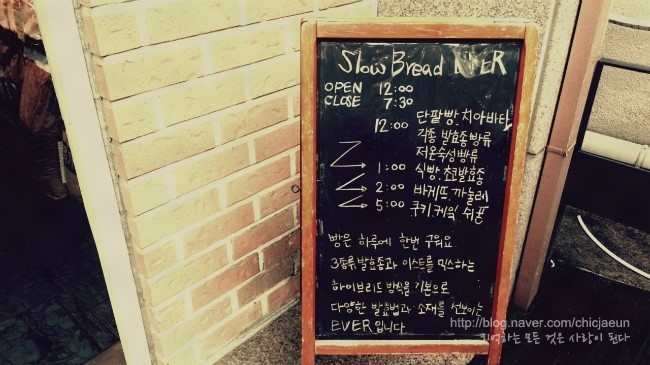 Slow Bread EVER
OPEN 12:00
CLOSE 7:30
12:00 단팥빵.치아바타
각종 발효종빵류
저온숙성빵류
1:00 식빵.초코발효종
2:00 바게뜨.까눌레
5:00 쿠키.케잌.쉬폰
빵은 하루에 한번 구워요
3종류 발효종과 이스트를 믹스하는
하이브리드 방식을 기본으로
다양한 발효법과 소재를 선보이는
EVER입니다
http://blog.naver.com/chicjaeun
기억하는 모든 것은 사랑이 된다